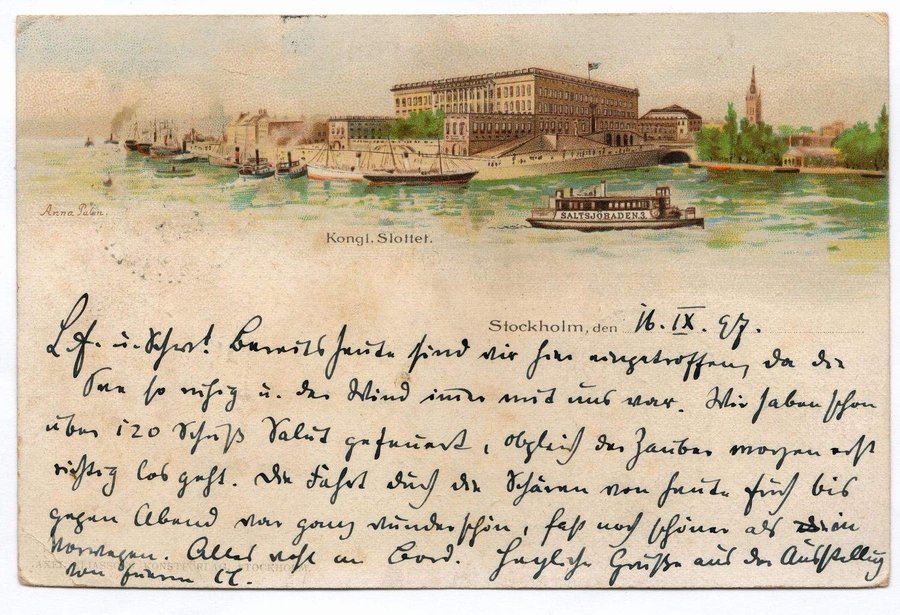 Anna Palm.
SALTSJÖBADEN.3.
Kongl. Slottet.
Stockholm, den 16. IX. 97.
L. u. Bereits heute sind wir hier eingetroffen, da die
See so ruhig u. der Wind immer mit uns war. Wir haben schon
über 120 Schuß Salut gefeuert, obgleich der Zauber morgen erst
richtig los geht. Die Fahrt durch die Schären von heute früh bis
gegen Abend war ganz wunderschön, fast noch schöner als in
Norwegen. Alles wohl an Bord. Herzliche Grüße aus der Ausstellung
von Eurem
AXEL ELIASSONS KONSTFÖRLAG, STOCKHOLM